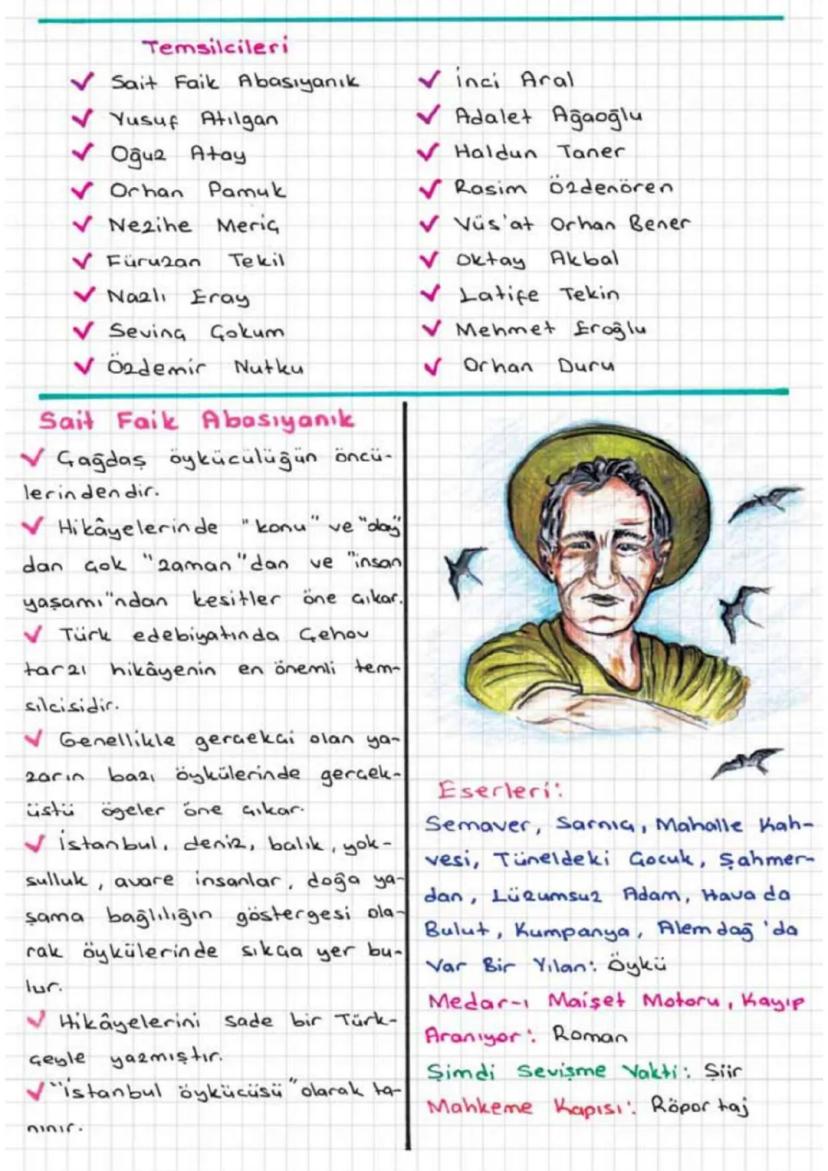 Temsilcileri
✓ Sait Faik Abasıyanık
✓ Yusuf Atılgan
✓ Oğuz Atay
✓ Orhan Pamuk
✓ Nezihe Meriç
✓ Füruzan Tekil
✓ Nazlı Eray
✓ Sevinç Çokum
✓ Özdemir Nutku
✓ İnci Aral
✓ Adalet Ağaoğlu
✓ Haldun Taner
✓ Rasim Özdenören
✓ Vüs'at Orhan Bener
✓ Oktay Akbal
✓ Latife Tekin
✓ Mehmet Eroğlu
✓ Orhan Duru
Sait Faik Abasıyanık
✓ Çağdaş öykücülüğün öncü-
lerindendir.
✓ Hikâyelerinde "konu" ve "olay"
dan çok "zaman"dan ve "insan
yaşamı"ndan kesitler öne çıkar.
✓ Türk edebiyatında Çehov
tarzı hikâyenin en önemli tem-
silcisidir.
✓ Genellikle gerçekçi olan ya-
zarın bazı öykülerinde gerçek-
üstü ögeler öne çıkar.
✓ İstanbul, deniz, balık, yok-
sulluk, avare insanlar, doğa ya-
şama bağlılığın göstergesi ola-
rak öykülerinde sıkça yer bu-
lur.
✓ Hikâyelerini sade bir Türk-
çeyle yazmıştır.
✓ "İstanbul öykücüsü" olarak ta-
nınır.
Eserleri:
Semaver, Sarnıç, Mahalle Kah-
vesi, Tüneldeki Çocuk, Şahmer-
dan, Lüzumsuz Adam, Havada
Bulut, Kumpanya, Alemdağ'da
Var Bir Yılan: Öykü
Medar-ı Maişet Motoru, Kayıp
Aranıyor: Roman
Şimdi Sevişme Vakti: Şiir
Mahkeme Kapısı: Röportaj